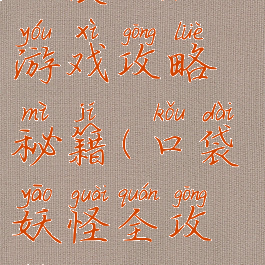 yóu xì gōng lüè
游戏攻略
mì jí kǒu dài
秘籍(口袋
yāo guài quán gōng
妖怪全攻